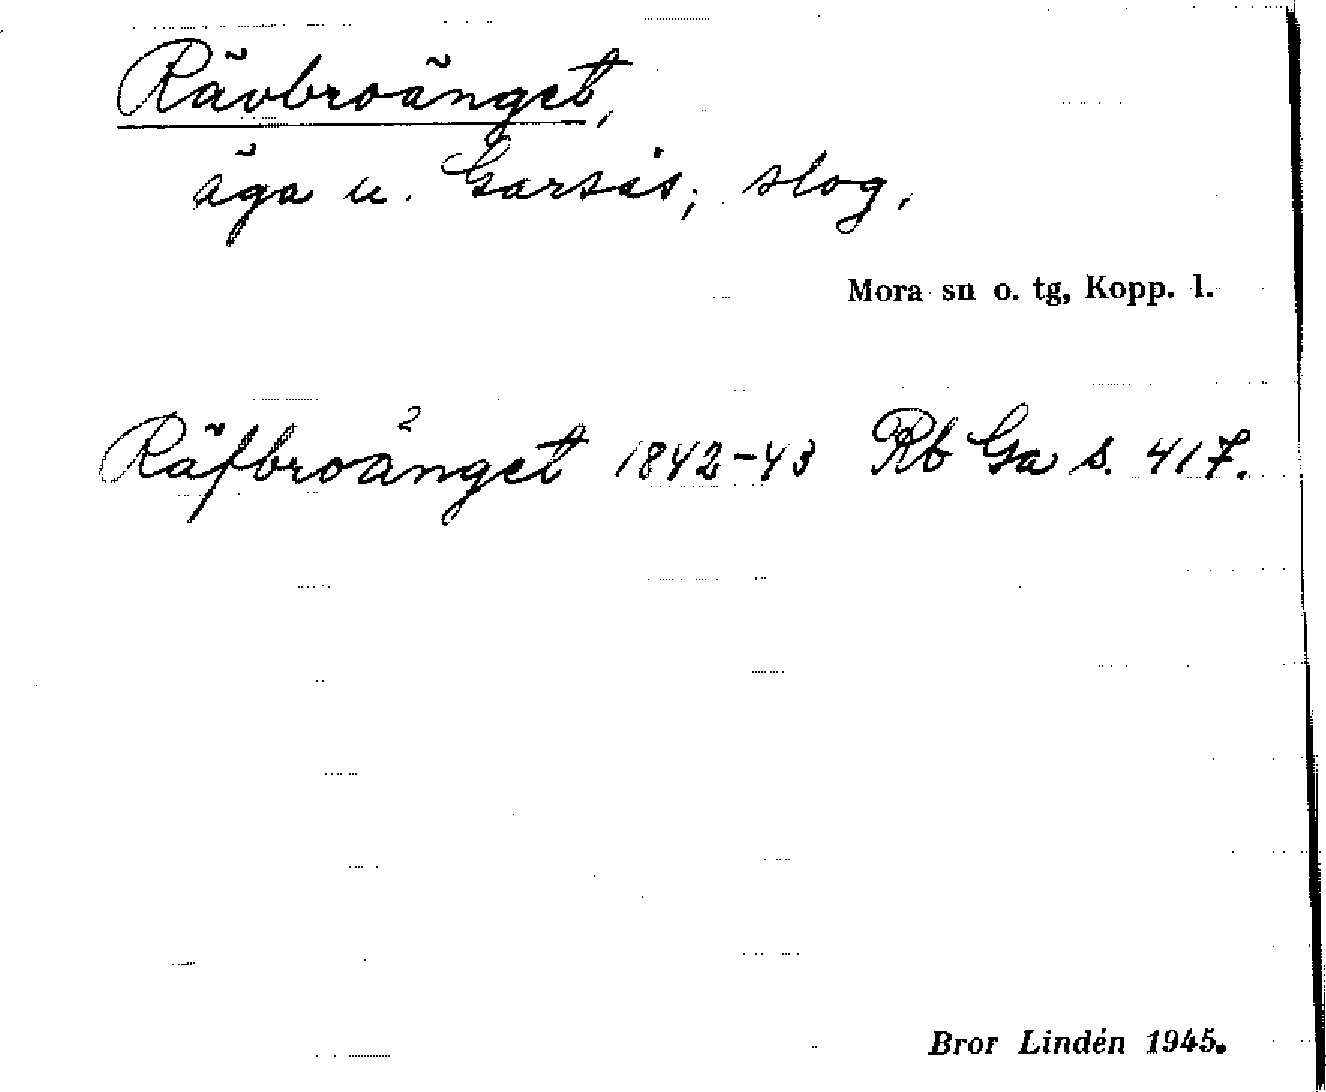 Rävbroänget,
äga u. Garsås; slog.
Mora sn o. tg, Kopp. l.
Räfbroänget 1842-43 Rb Ga s. 417.
Bror Lindén 1945.